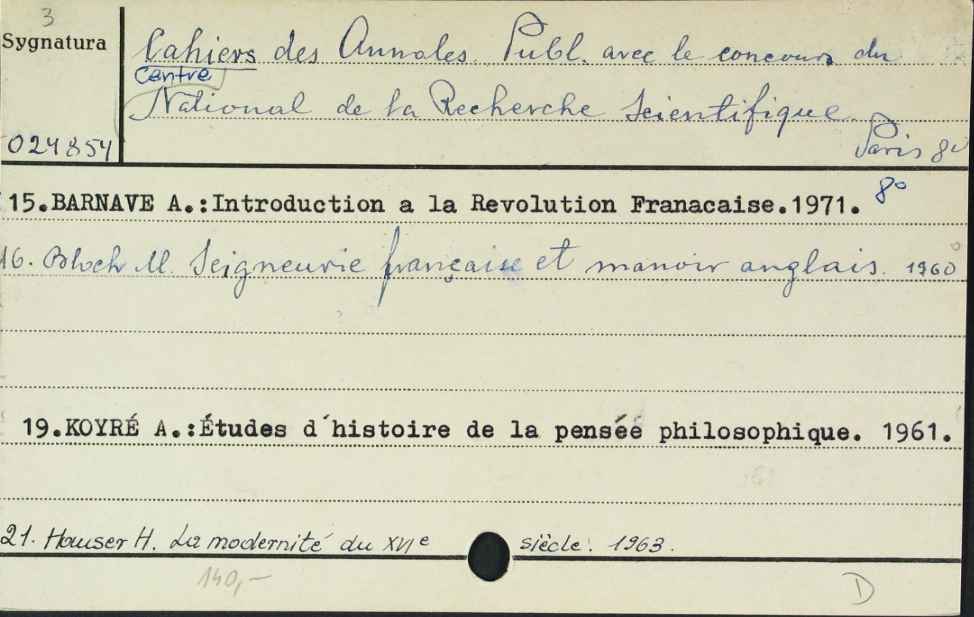 3
Sygnatura
Cahiers des Annales. Publ. avec le concours du
Centre
National de la Recherche Scientifique
024854
Paris 8°
15.BARNAVE A.:Introduction a la Revolution Franacaise.1971. 8°
16. Bloch M. Seigneurie française et manoir anglais. 1960
19.KOYRÉ A.:Études d´histoire de la penséé philosophique. 1961.
21. Hauser H. La modernité du XVIe siècle. 1963.
140,-
D